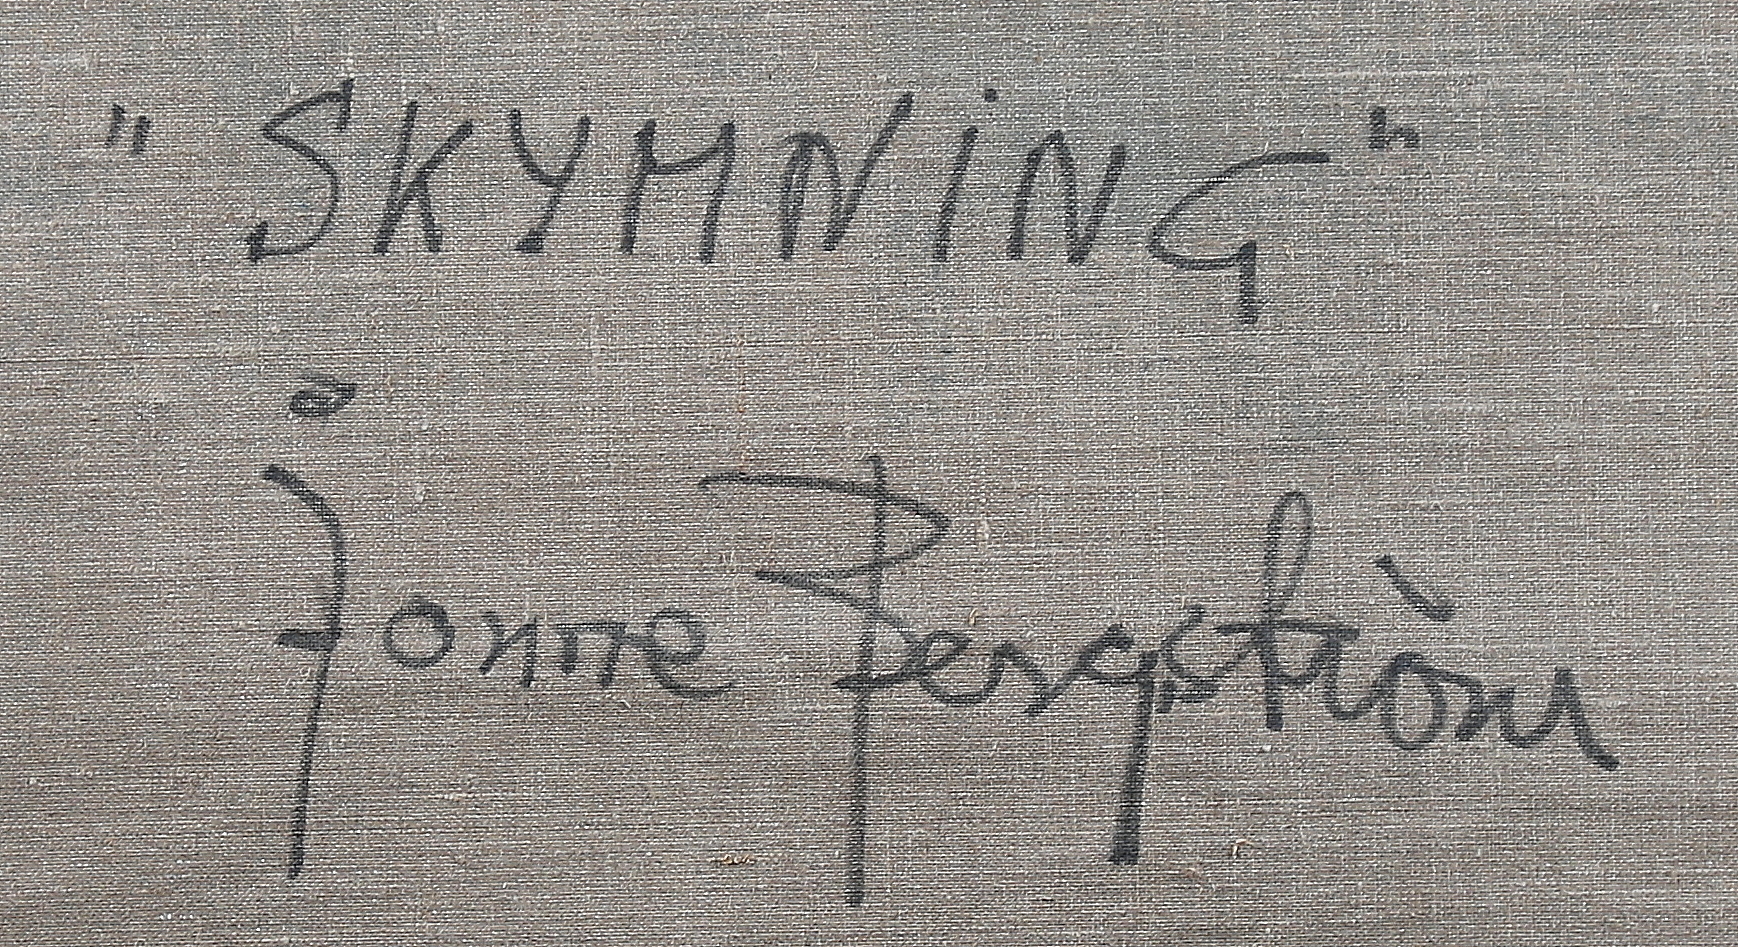 "SKYMNING"
Jonne Bergström